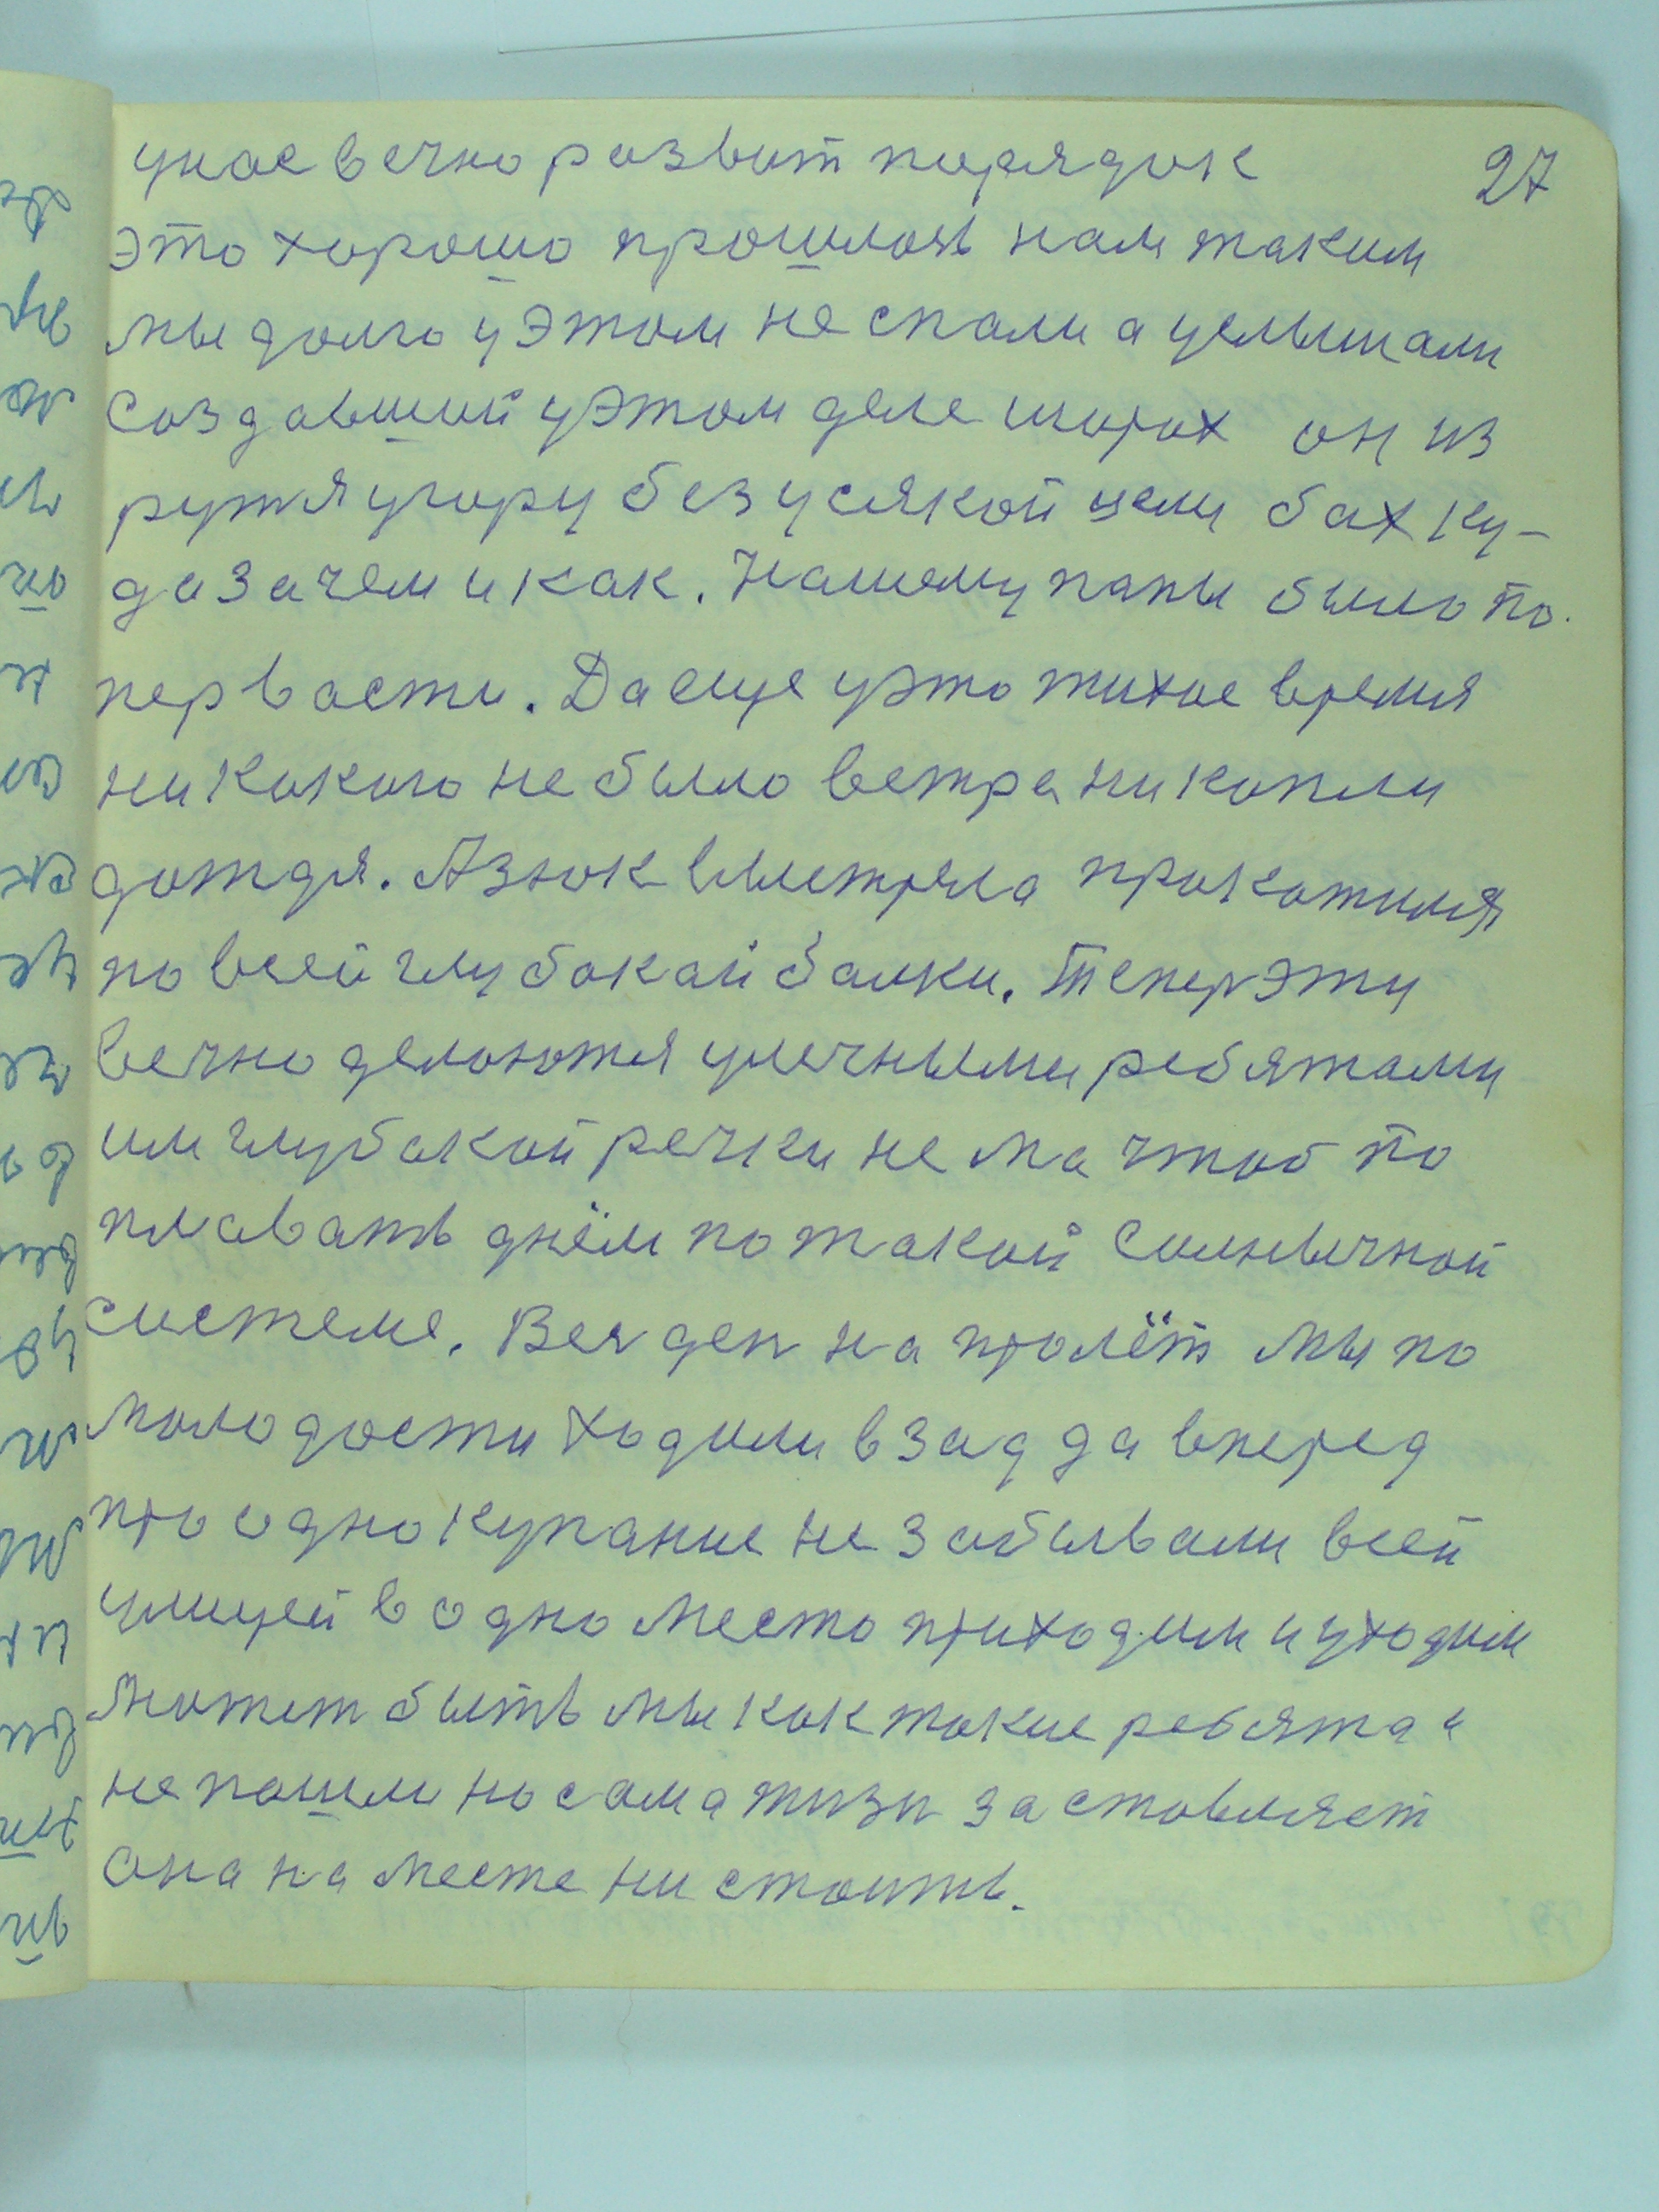 27
у нас вечно розвит порядок
это хорошо прошлось нам таким
мы долго у этом не спали а услышали
создавший у этом деле шорох он из
ружя угору без усякой цели бах ку-
да зачем и как. Нашему папы было по.
первости. Да еще у это тихое время
ни какого не было ветра ни копли
дождя. А звок выстряла прокотился
по всей глубокай балки. Тепер эти
вечно делоются уличными ребятами
им глубокой речки не ма чтоб по
плавать днём по такой солнычной
системе. Вес ден на пролёт мы по
молодости ходили взад да вперед
про одно купание не забывали всей
улицей в одно место приходим и уходим
может быть мы как такие ребята и
не пошли но сама жизн заставляет
она на месте ни стоить.